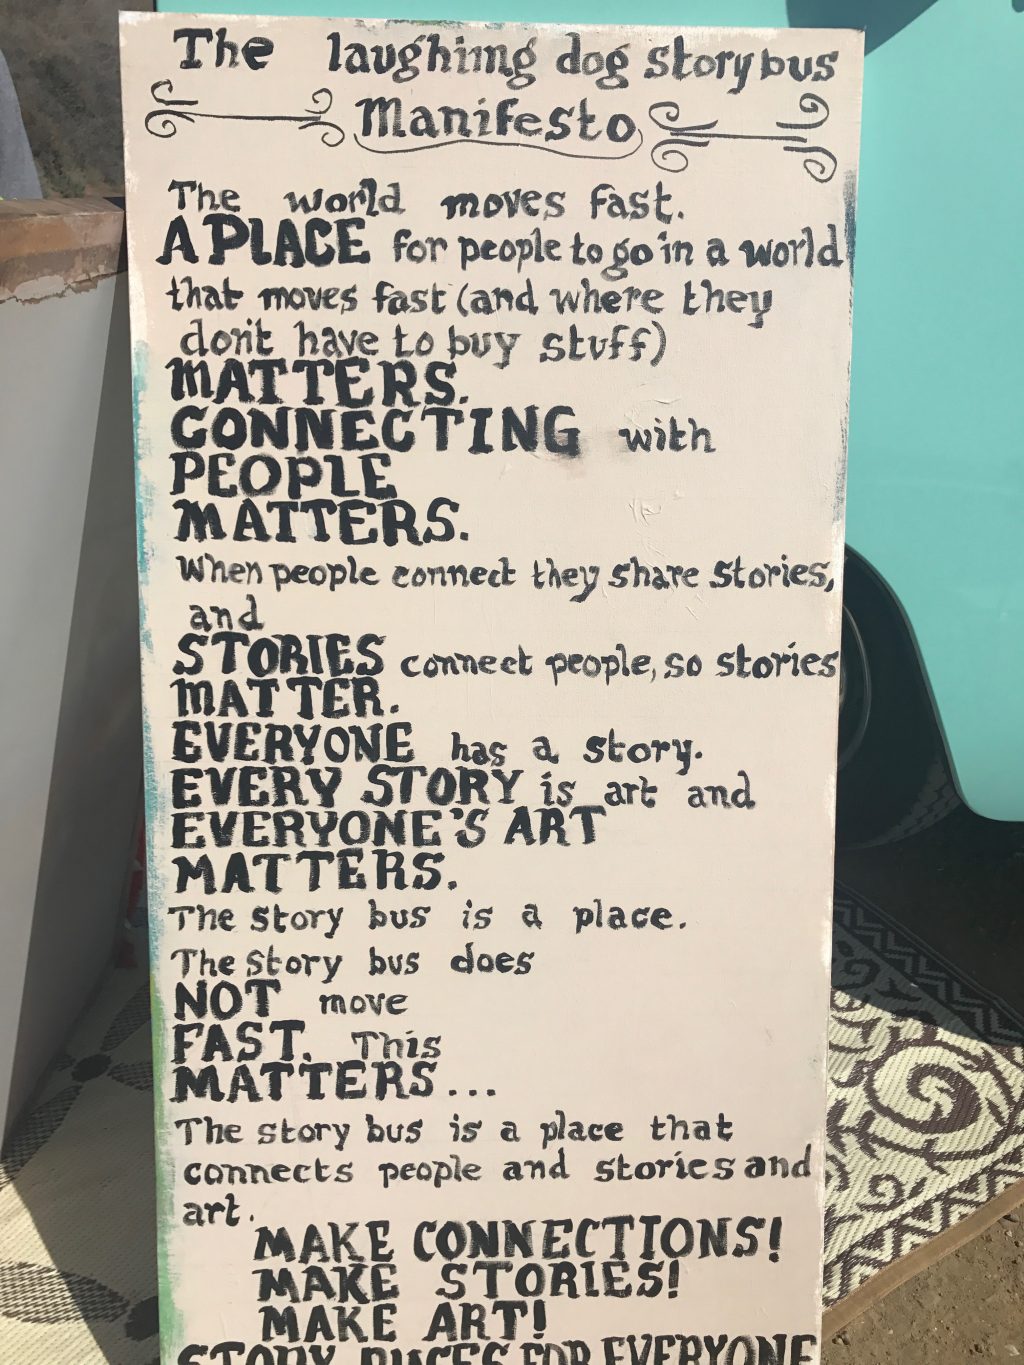 The laughing dog story bus
Manifesto
The world moves fast.
A PLACE for people to go in a world
that moves fast (and where they
don't have to buy stuff)
MATTERS.
CONNECTING with
PEOPLE
MATTERS.
When people connect they share stories,
and
STORIES connect people, so stories
MATTER.
EVERYONE has a story.
EVERY STORY is art and
EVERYONE'S ART
MATTERS.
The story bus is a place.
The story bus does
NOT move
FAST. This
MATTERS...
The story bus is a place that
connects people and stories and
art.
MAKE CONNECTIONS!
MAKE STORIES!
MAKE ART!
STORY BUSES FOR EVERYONE